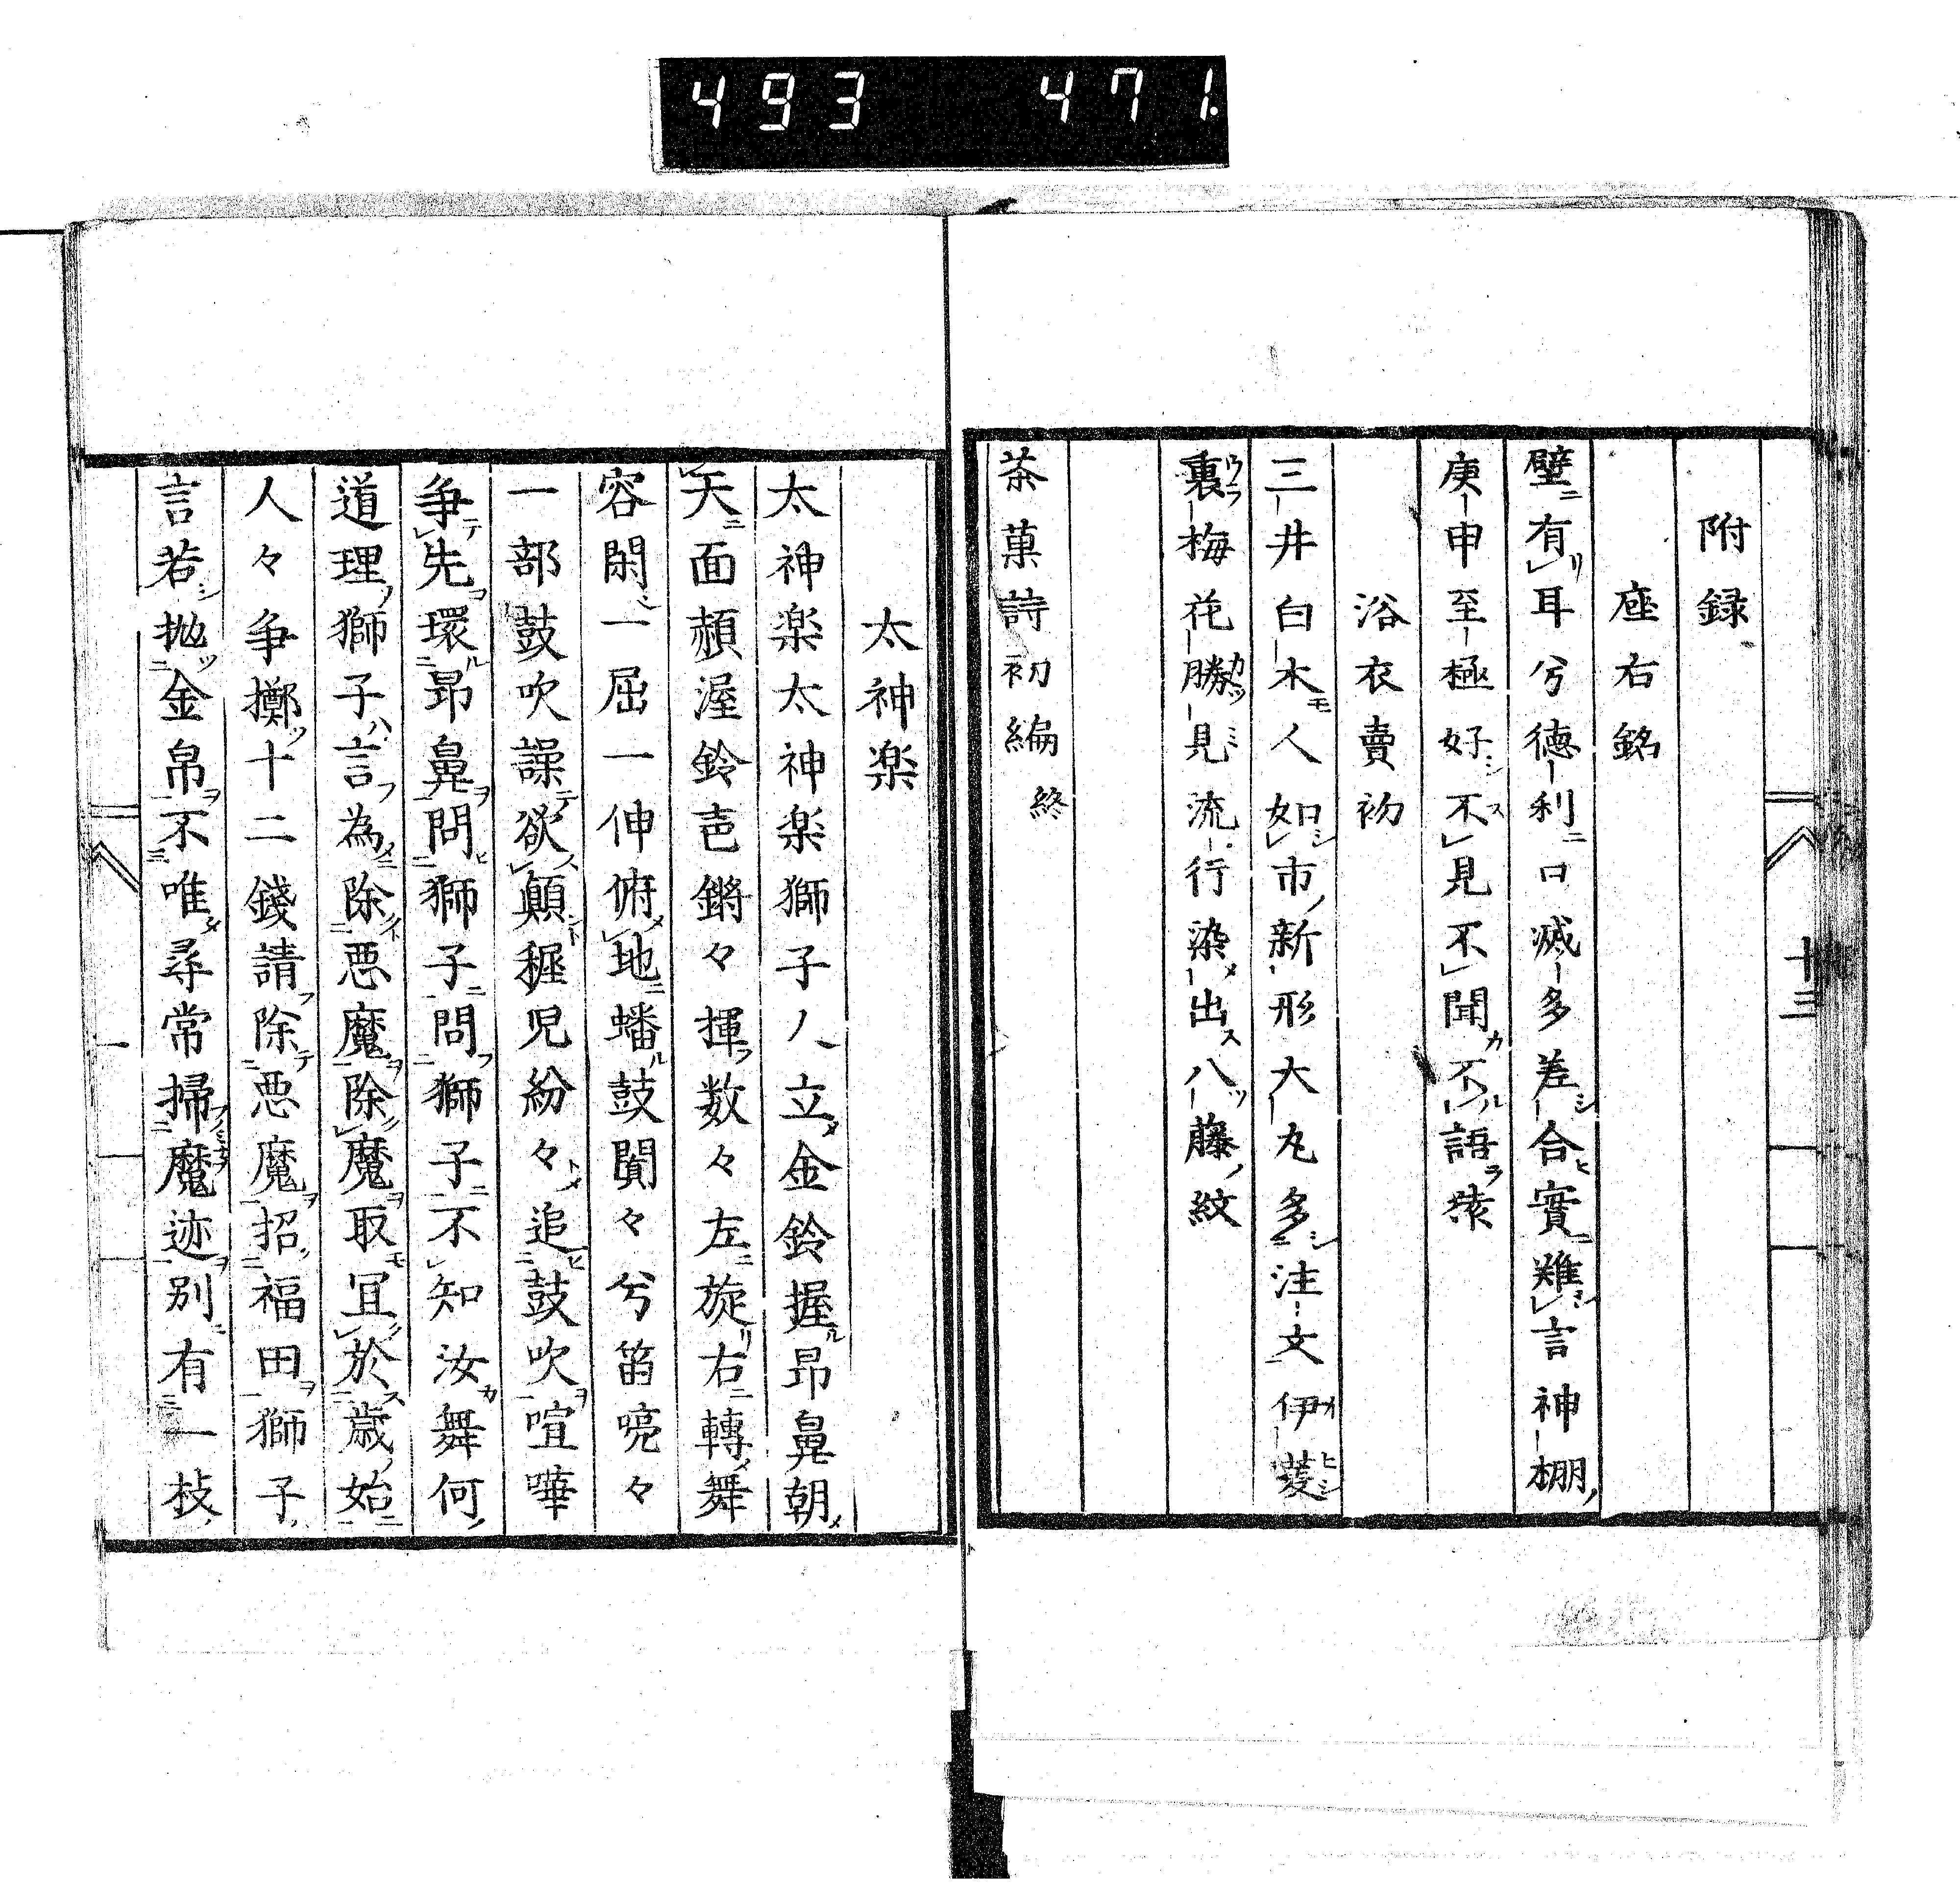 493 471.
附録
座右銘
壁有耳兮徳利口滅多差合實難言神棚
庚申至極好不見不聞不語猿
浴衣賣初
三井白木人如市新形大丸多注文伊菱
裏梅花勝見流行染出八藤紋
茶菓詩初編終
十三
太神楽
太神楽太神楽獅子人立金鈴握昂鼻朝
天面頳渥鈴声鏘々揮数々左旋右轉舞
容閑一屈一伸俯地蟠鼓聞々兮笛喨々
一部鼓吹譟欲顛穉児紛々追鼓吹喧嘩
争先環昂鼻問獅子問獅子不知汝舞何
道理獅子言為除悪魔除魔取冝於歳始
人々争擲十二錢請除悪魔招福田獅子
言若抛金帛不唯尋常掃魔迹別有一枝
一